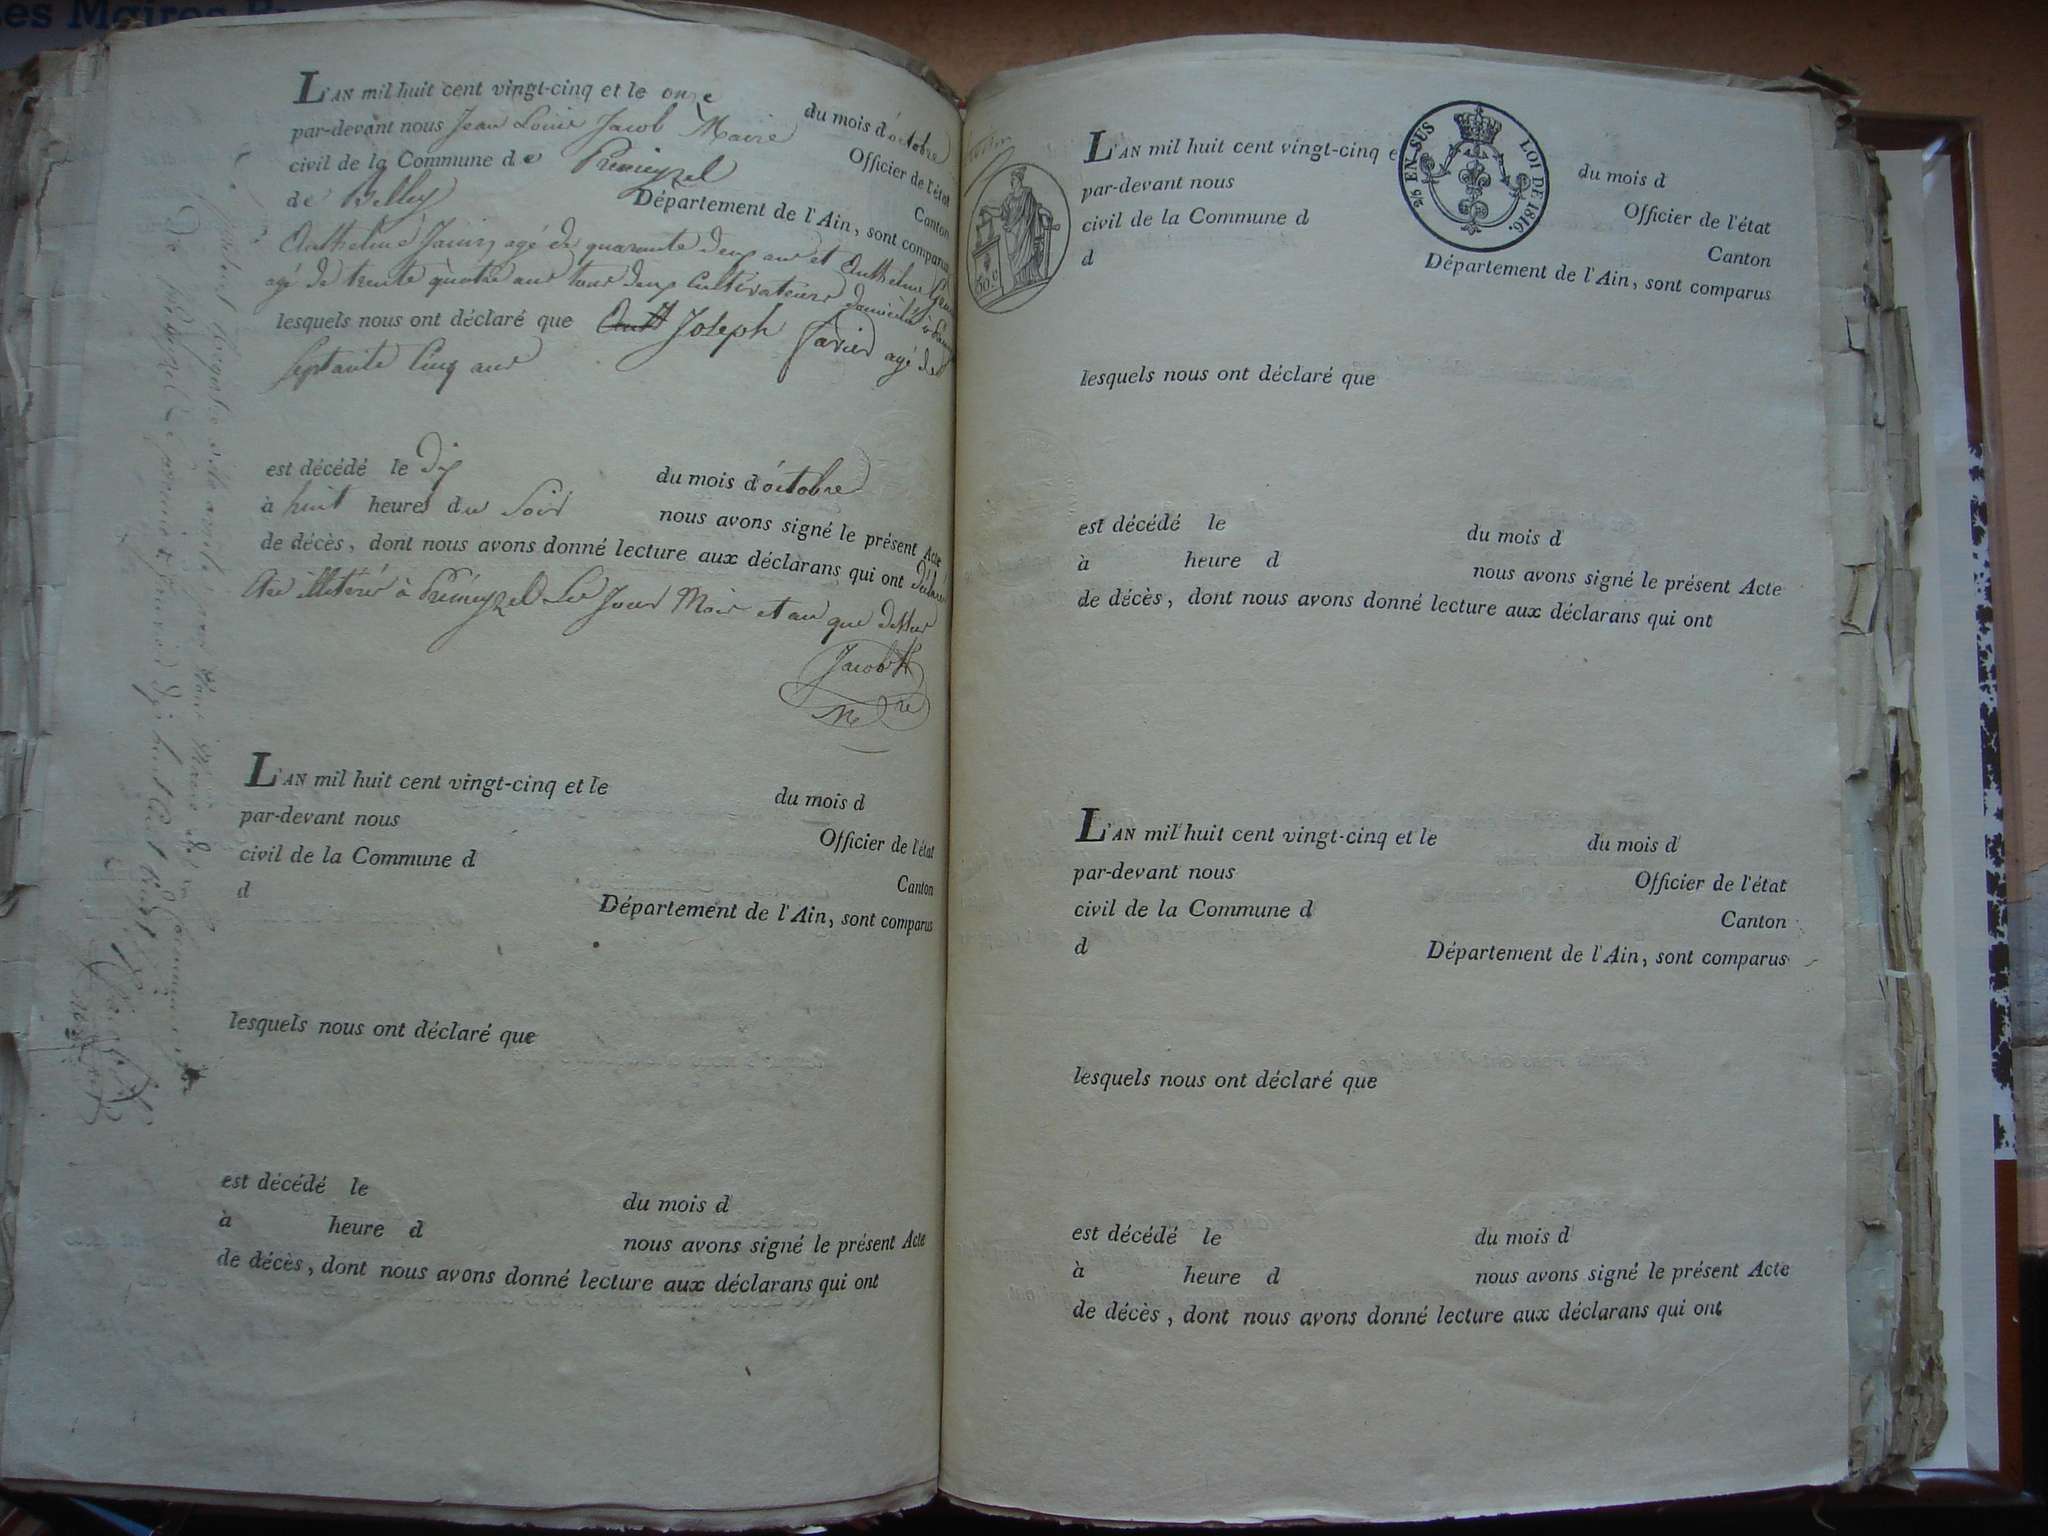 es Maires Ru
L'AN mil huit cent vingt-cinq et le onze du mois d'octobre
par-devant nous Jean Louis Jacob Maire Officier de l'état
civil de la Commune de Prémeyzel Canton
de Belley Département de l'Ain, sont comparus
Anthelme agé de quarante deux ans et Anthelme
agé de trente quatre ans tous deux cultivateurs
lesquels nous ont déclaré que Joseph agé de
septante cinq ans
est décédé le dix du mois d'octobre
à huit heures du soir nous avons signé le présent Acte
de décès, dont nous avons donné lecture aux déclarans qui ont déclaré
illiteré à Prémeyzel les jour mois et an que dessus
Jacob
L'AN mil huit cent vingt-cinq et le du mois d
par-devant nous Officier de l'état
civil de la Commune d Canton
d Département de l'Ain, sont comparus
lesquels nous ont déclaré que
est décédé le du mois d
à heure d nous avons signé le présent Acte
de décès, dont nous avons donné lecture aux déclarans qui ont
50 c
EN-SUS LOI DE 1816.
L'AN mil huit cent vingt-cinq e du mois d
par-devant nous Officier de l'état
civil de la Commune d Canton
d Département de l'Ain, sont comparus
lesquels nous ont déclaré que
est décédé le du mois d
à heure d nous avons signé le présent Acte
de décès, dont nous avons donné lecture aux déclarans qui ont
L'AN mil huit cent vingt-cinq et le du mois d
par-devant nous Officier de l'état
civil de la Commune d Canton
d Département de l'Ain, sont comparus
lesquels nous ont déclaré que
est décédé le du mois d
à heure d nous avons signé le présent Acte
de décès, dont nous avons donné lecture aux déclarans qui ont